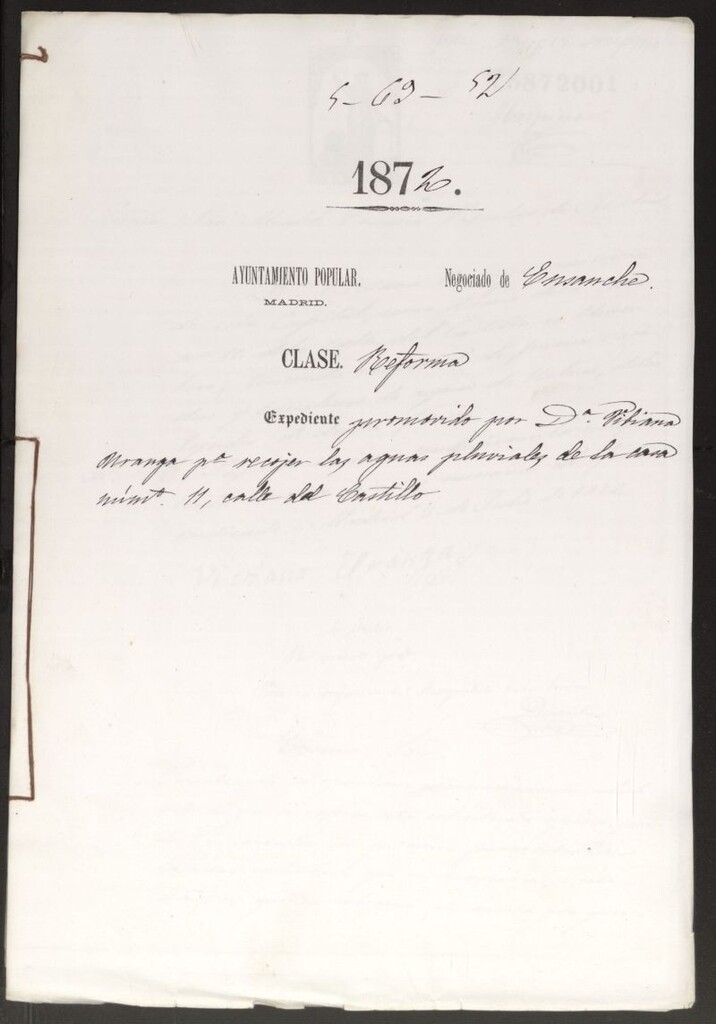 5-69-52
1872.
AYUNTAMIENTO POPULAR. Negociado de Ensanche.
MADRID.
CLASE. Reforma
Expediente promovido por Dª. Bibiana
Uranga pª recojer las aguas pluviales de la casa
númº. 11, calle del Castillo